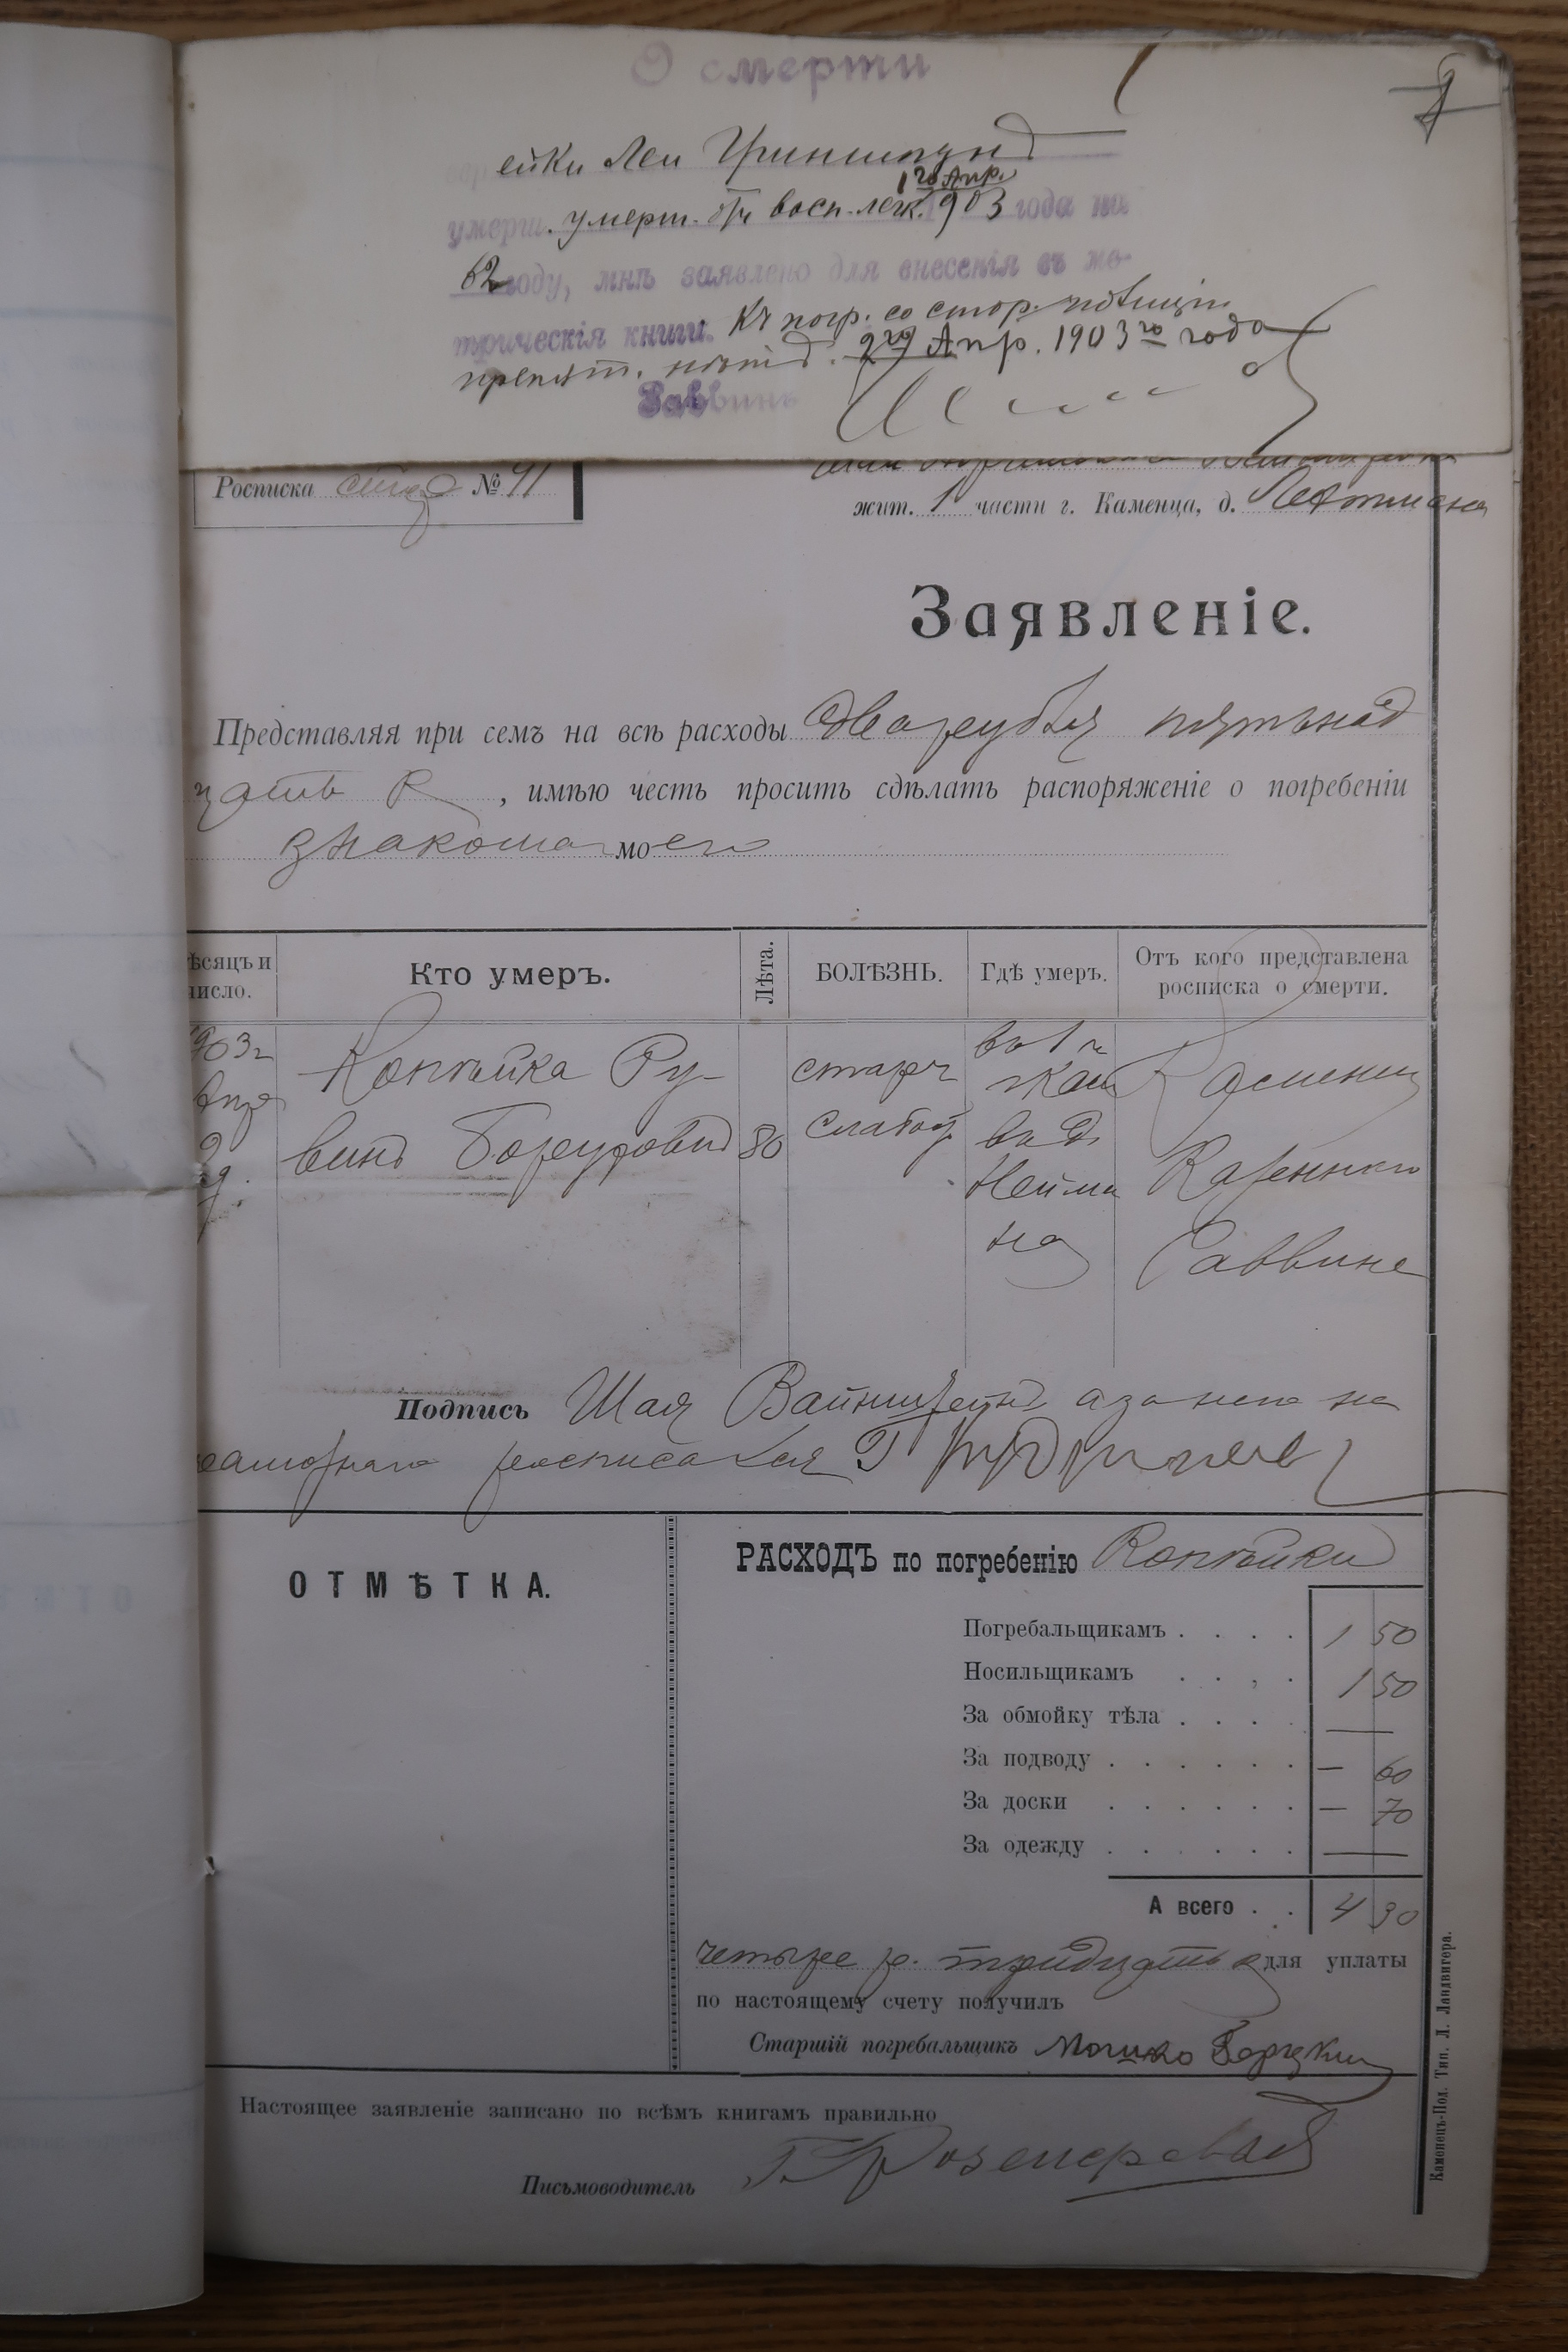 О смерти
ейки Леи Гриншпунъ
1го Апр.
умерш. умерш. отъ восп. легк. 1903 года на
62 году, мнѣ заявлено для внесенія въ ме-
трическія книги. Къ погр. со стор. полиціи
препят. нѣтъ. 2го Апр. 1903го года
Саввинъ
Росписка № 41
жит. 1 части г. Каменца, д.
Заявленіе.
Представляя при семъ на всѣ расходы два рубля пятьнад
цать к , имѣю честь просить сдѣлать распоряженіе о погребеніи
знакома моего
ѣсяцъ и число. Кто умеръ. Лѣта. БОЛѢЗНЬ. Гдѣ умеръ. Отъ кого представлена росписка о смерти.
903г Копѣйка Ру- старч въ 1 ч Каменец
Апр винъ Боруховъ 80 слабос въ д. Казеннаго
2 д. Нейма Раввина
на
Подпись Шая Вайнштейнъ а за него не
грамотнаго росписался Г
ОТМѢТКА.
РАСХОДЪ по погребенію Копѣйки
Погребальщикамъ . . . . 1 50
Носильщикамъ . . . . 1 50
За обмойку тѣла . . . . —
За подводу . . . . . . — 60
За доски . . . . . . — 70
За одежду . . . . . . —
А всего . . 4 30
четыре р. тридцать к для уплаты
по настоящему счету получилъ
Старшій погребальщикъ Мошко
Настоящее заявленіе записано по всѣмъ книгамъ правильно
Письмоводитель
Каменецъ-Под. Тип. Л. Ландвигера.